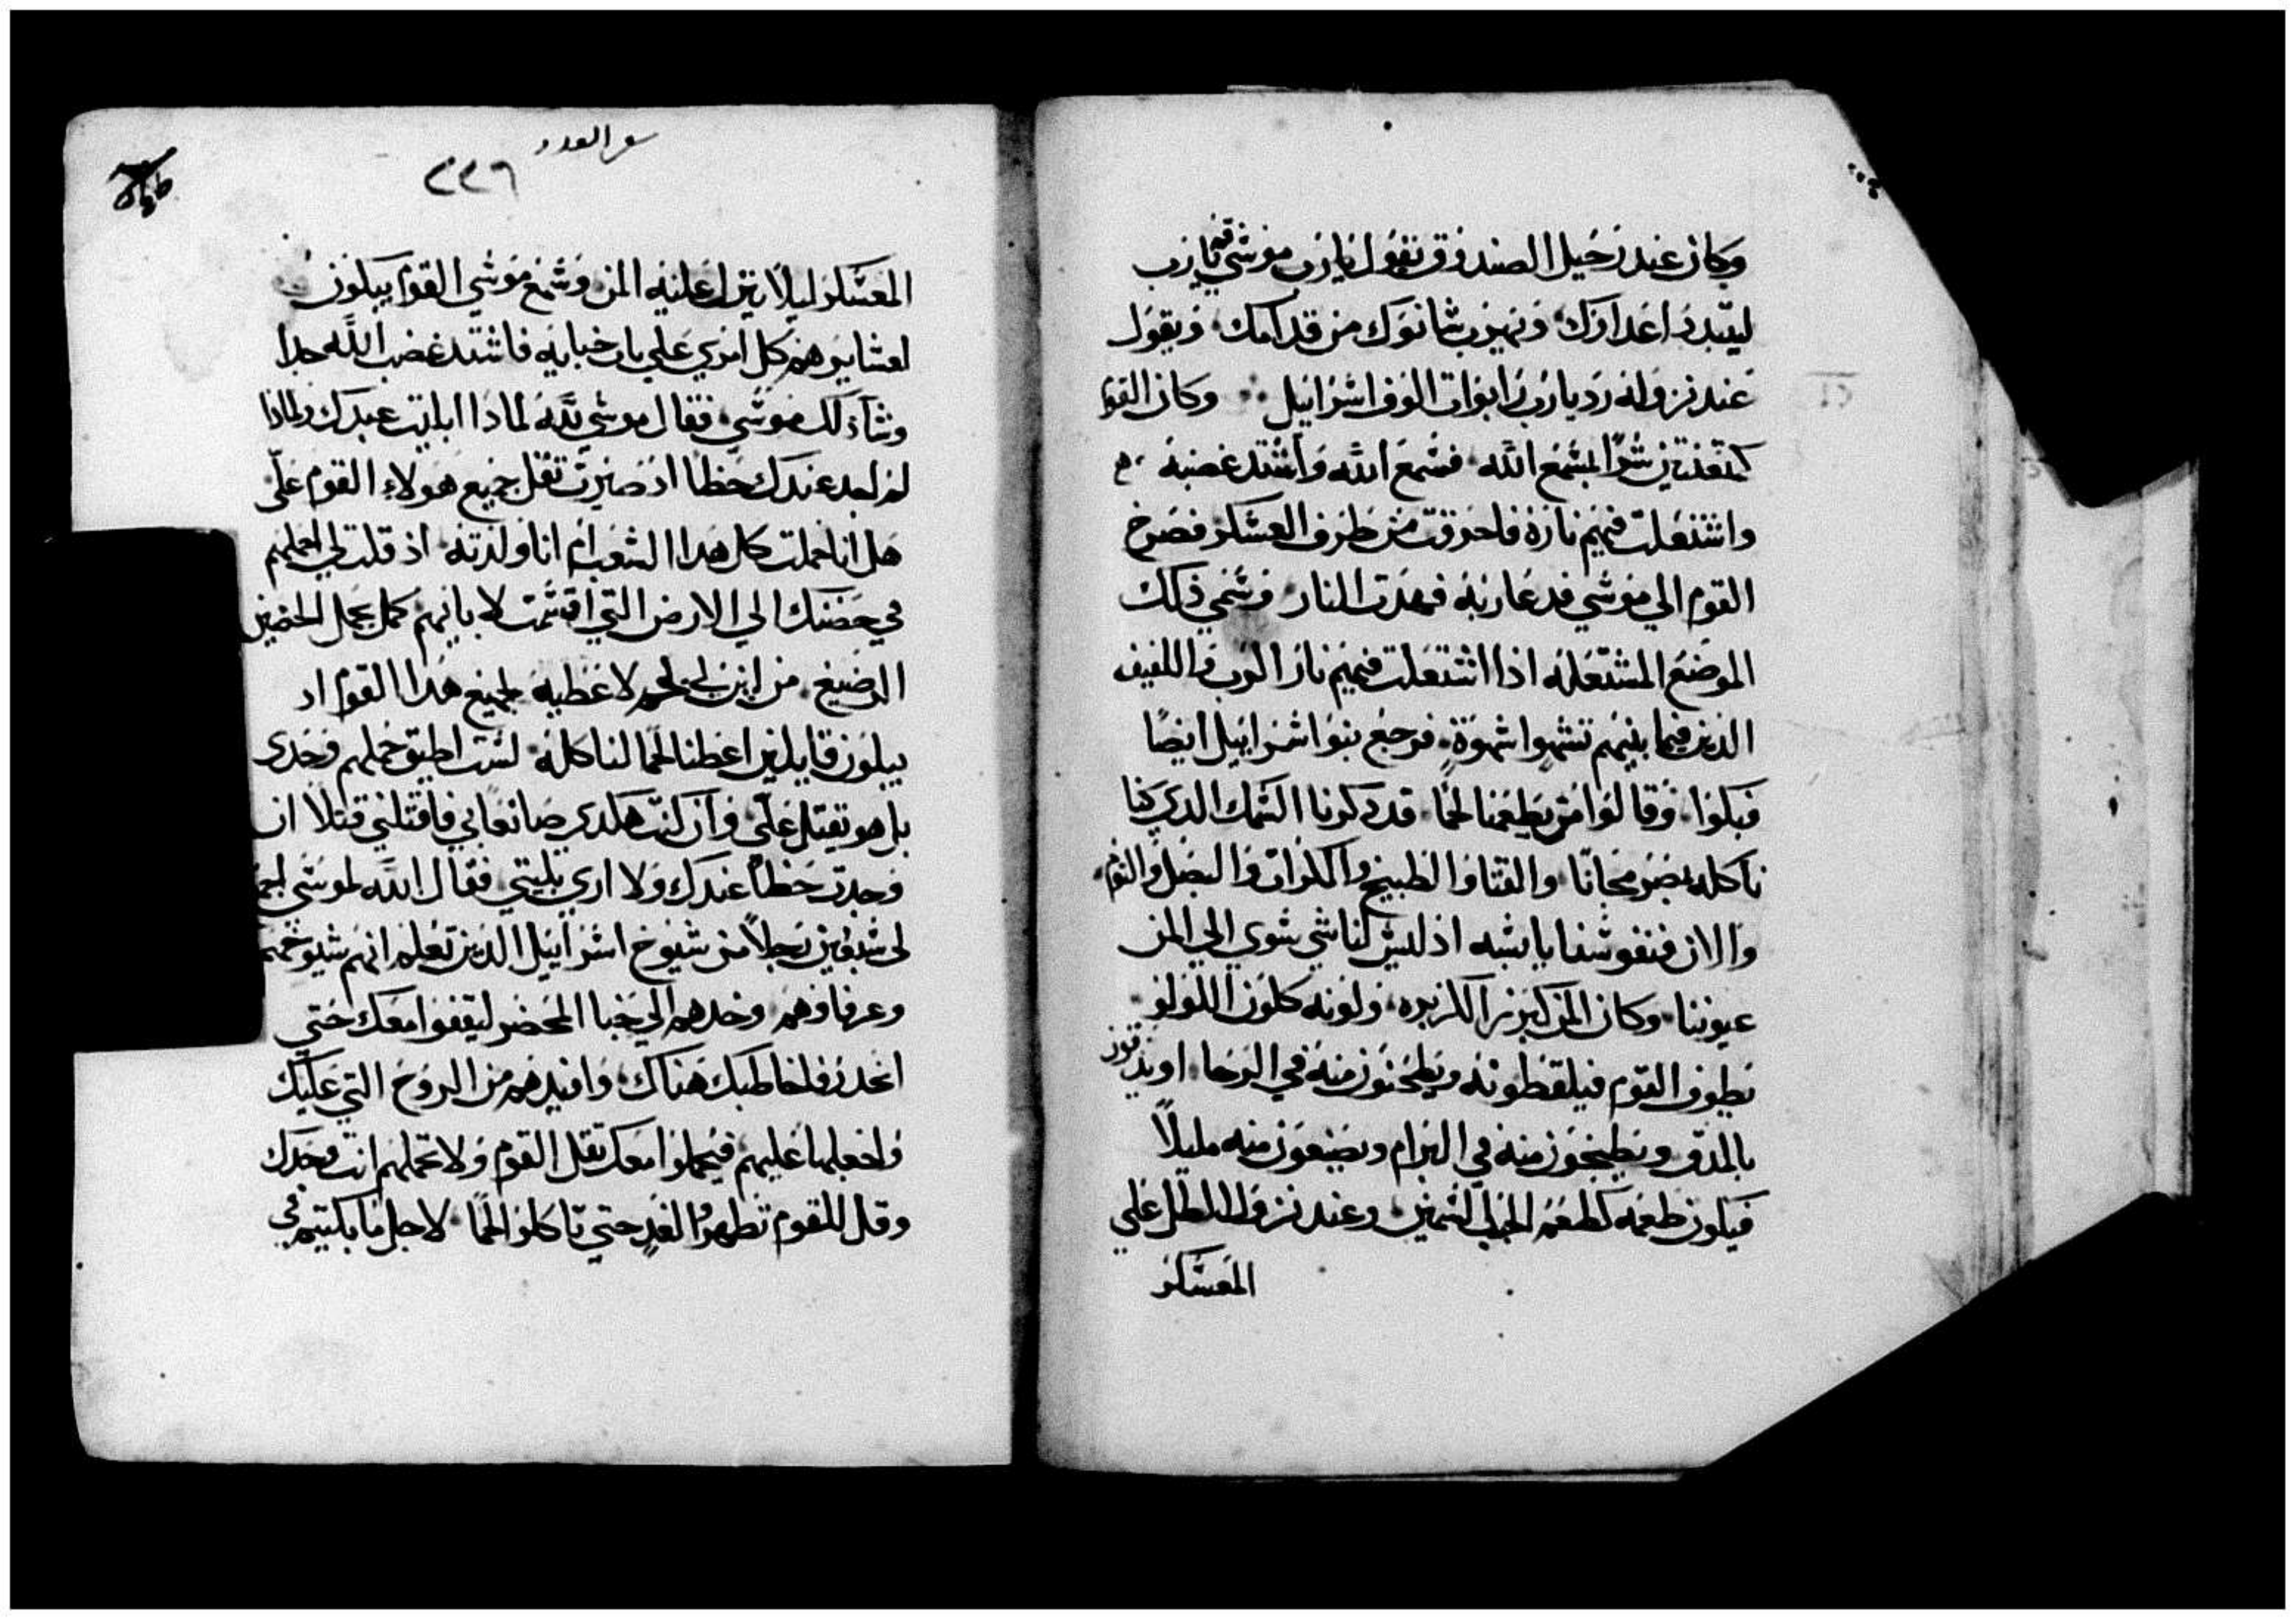 وكان عند رحيل الصندوق يقول يارب موسى قم يا رب
ليتبدد اعداوك ويهرب شانوك من قدامك ويقول
عند نزوله رد يارب ربوات الوف اسرائيل وكان القوم
كمتعنتين شرا لمسمع الله فسمع الله واشتد غضبه
واشتعلت فيهم ناره فاحرقت من طرف العسكر فصرخ
القوم الي موسي فدعا ربه فهدت النار وسمي ذلك
الموضع المشتعله اذا اشتعلت فيهم نار الرب واللفيف
الدين فيما بينهم تشهوا شهوة فرجع بنوا اسراييل ايضًا
فبكوا وقالوا من يطعمنا لحمًا قد دكرنا السمك الدي كنا
ناكله بمصر مجانًا والقتا والطبيخ والكراث والبصل والثوم
والان فنفوسنا يابسه اذ ليس لنا شي سوي الي المن
عيوننا وكان المن كبزر الكزبره ولونه كلون اللولو
يطوف القوم فيلقطونه ويطحنون منه في الرحا او يدقون
بالمدق ويطبخون منه في البرام ويصنعون منه مليلاً
فيكون طعمه كطعم السمين وعند نزول الطل علي
المعسكر
سفر العدد
٢٢٦
المعسكر ليلاً ينزل عليه المن وسمع موسي القوم يبكون
لعشايرهم كل امري علي باب خبايه فاشتد غضب الله جدا
وساء ذلك موسي فقال موسي لله لماذا ابليت عبدك ولماذا
لم اجد عندك حظًا اذ صيرت تقل جميع هولاء القوم علّي
هل انا حملت كل هدا الشعب ام انا ولدته اذ قلت لي احملهم
في حضنك الي الارض التي اقسمت لابايهم كمل يحمل الحضين
الرضيع من اين لي لحم لاعطيه لجميع هدا القوم اد
يبكون قايلين اعطنا لحما لناكله لست اطيق حملهم وحدي
بل هو يتقل علّي وان كنت هكدي صانعًا بي فاقتلني قتلا ان
وجدت حظًا عندك ولا اري بليتي فقال الله لموسي اجمع
لي سبعين رجلاً من شيوخ اسراييل الدين تعلم انهم شيوخهم
وعرفاوهم وخدهم الي خبا المحضر ليقفوا معك حتي
انحدر فاخاطبك هناك وافيدهم من الروح التي عليك
واجعلها عليهم فيحملوا معك تقل القوم ولا تحملهم انت وحدك
وقل للقوم تطهروا لغدٍ حتي تاكلوا لحمًا لاجل ما بكيتم في